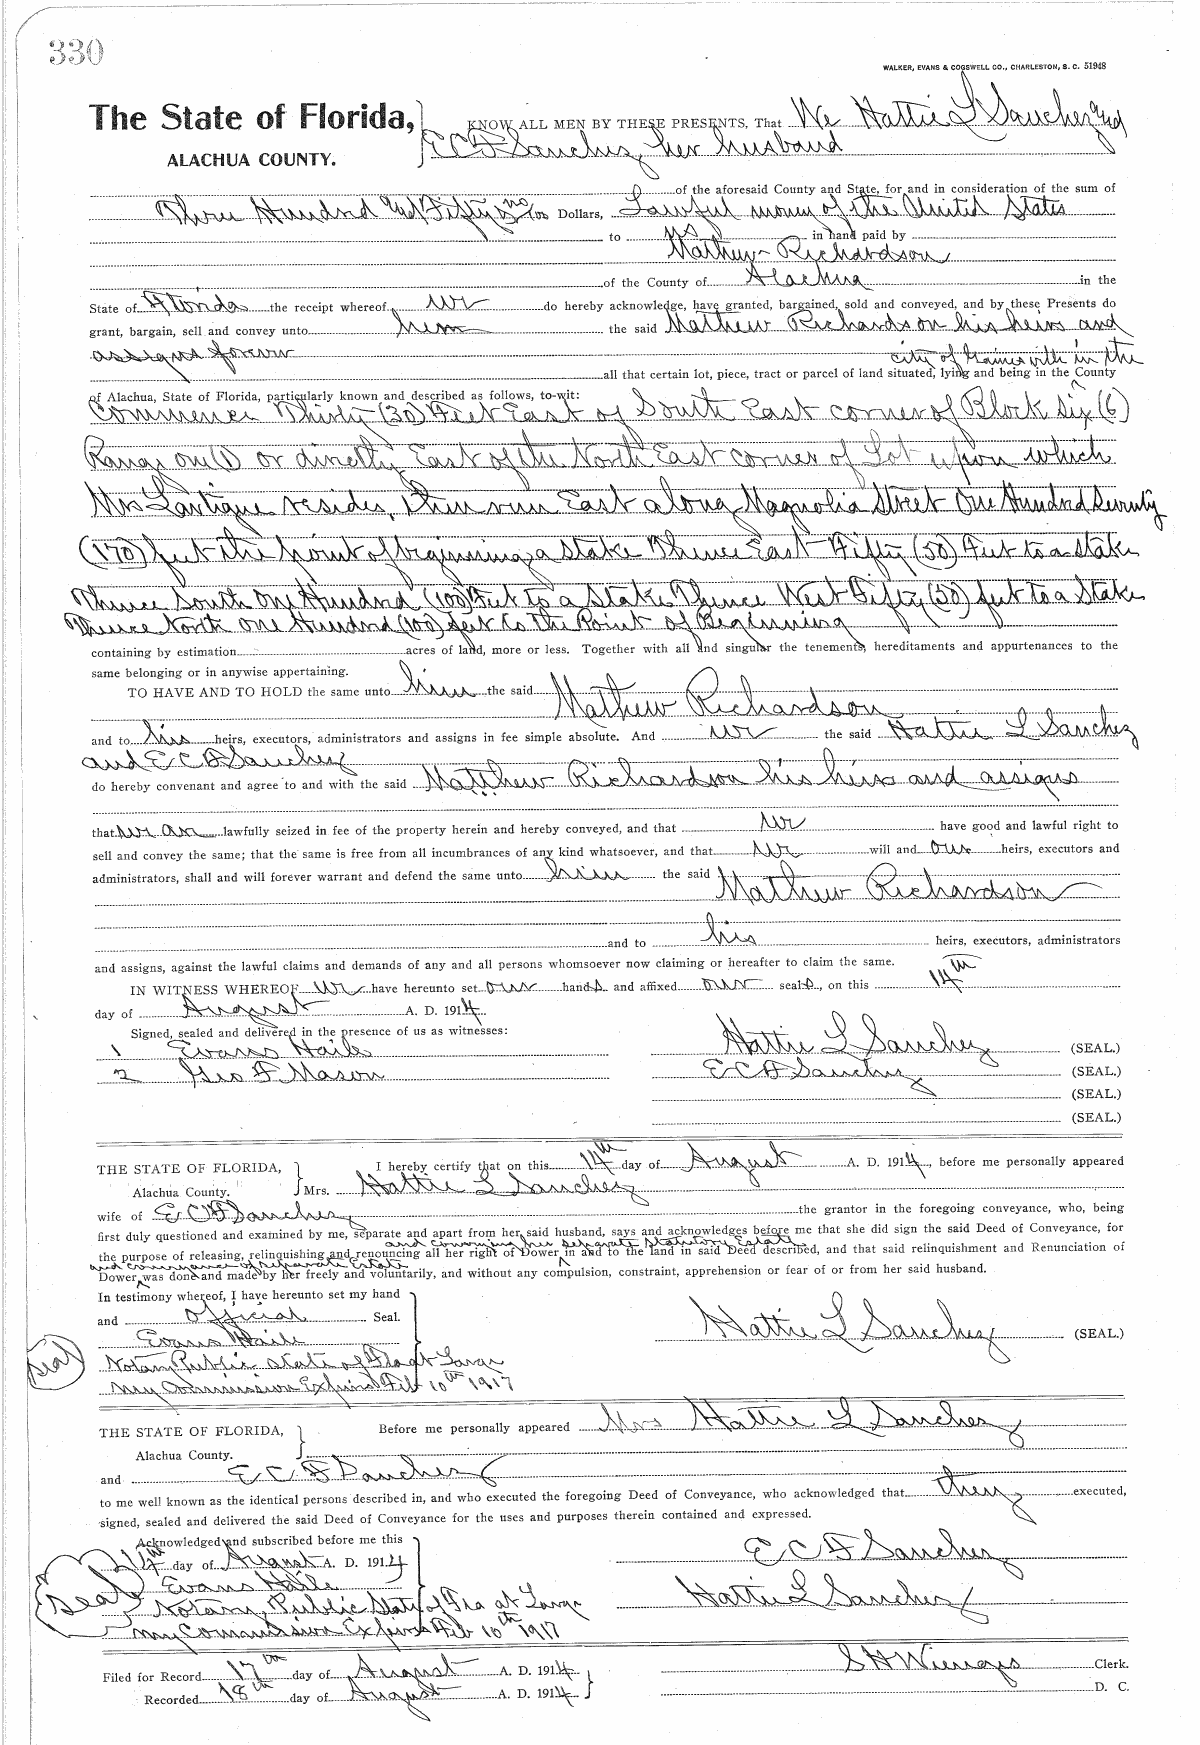 330
WALKER, EVANS & COGSWELL CO., CHARLESTON, S. C. 51948
The State of Florida, KNOW ALL MEN BY THESE PRESENTS, That We Hattie L Sanchez and
ALACHUA COUNTY. E C F Sanchez, her husband
of the aforesaid County and State, for and in consideration of the sum of
Three Hundred and Fifty & no/00 Dollars, Lawful money of the United States
to us in hand paid by
Mathew Richardson
of the County of Alachua in the
State of Florida the receipt whereof we do hereby acknowledge, have granted, bargained, sold and conveyed, and by these Presents do
grant, bargain, sell and convey unto him the said Mathew Richardson his heirs and
assigns forever city of Gainesville in the
all that certain lot, piece, tract or parcel of land situated, lying and being in the County
of Alachua, State of Florida, particularly known and described as follows, to-wit:
Commence Thirty (30) Feet East of South East corner of Block Six (6)
Range one (1) or directly East of the North East corner of Lot upon which
Mrs Lartigue resides, then run East along Magnolia Street One Hundred Seventy
(170) feet the point of beginning, a stake Thence East Fifty (50) Feet to a stake
Thence South One Hundred (100) Feet to a Stake Thence West Fifty (50) feet to a Stake
Thence North one Hundred (100) feet to the Point of Beginning
containing by estimation acres of land, more or less. Together with all and singular the tenements, hereditaments and appurtenances to the
same belonging or in anywise appertaining.
TO HAVE AND TO HOLD the same unto him the said Mathew Richardson
and to his heirs, executors, administrators and assigns in fee simple absolute. And we the said Hattie L Sanchez
and E C F Sanchez
do hereby convenant and agree to and with the said Matthew Richardson his heirs and assigns
that we are lawfully seized in fee of the property herein and hereby conveyed, and that we have good and lawful right to
sell and convey the same; that the same is free from all incumbrances of any kind whatsoever, and that we will and our heirs, executors and
administrators, shall and will forever warrant and defend the same unto him the said Mathew Richardson
and to his heirs, executors, administrators
and assigns, against the lawful claims and demands of any and all persons whomsoever now claiming or hereafter to claim the same.
IN WITNESS WHEREOF we have hereunto set our hands and affixed our seals, on this 14th
day of August A. D. 1914.
Signed, sealed and delivered in the presence of us as witnesses:
1 Evans Haile Hattie L Sanchez (SEAL.)
2 Geo F Mason E C F Sanchez (SEAL.)
(SEAL.)
(SEAL.)
THE STATE OF FLORIDA, I hereby certify that on this 14th day of August A. D. 1914, before me personally appeared
Alachua County. Mrs. Hattie L Sanchez
wife of E C F Sanchez the grantor in the foregoing conveyance, who, being
first duly questioned and examined by me, separate and apart from her said husband, says and acknowledges before me that she did sign the said Deed of Conveyance, for
and conveying her separate Statutory Estate
the purpose of releasing, relinquishing and renouncing all her right of Dower in and to the land in said Deed described, and that said relinquishment and Renunciation of
and conveyance of separate Estate
Dower was done and made by her freely and voluntarily, and without any compulsion, constraint, apprehension or fear of or from her said husband.
In testimony whereof, I have hereunto set my hand
and official Seal.
Evans Haile Hattie L Sanchez (SEAL.)
Seal Notary Public State of Fla at Large
My Commission Expires Feb 10th 1917
THE STATE OF FLORIDA, Before me personally appeared Mrs Hattie L Sanchez
Alachua County.
and E C F Sanchez
to me well known as the identical persons described in, and who executed the foregoing Deed of Conveyance, who acknowledged that they executed,
signed, sealed and delivered the said Deed of Conveyance for the uses and purposes therein contained and expressed.
Acknowledged and subscribed before me this
14th day of August A. D. 1914 E C F Sanchez
Seal Evans Haile
Notary Public State of Fla at Large Hattie L Sanchez
My Commission Expires Feb 10th 1917
Filed for Record 17th day of August A. D. 1914 S H Wienges Clerk.
Recorded 18th day of August A. D. 1914 D. C.